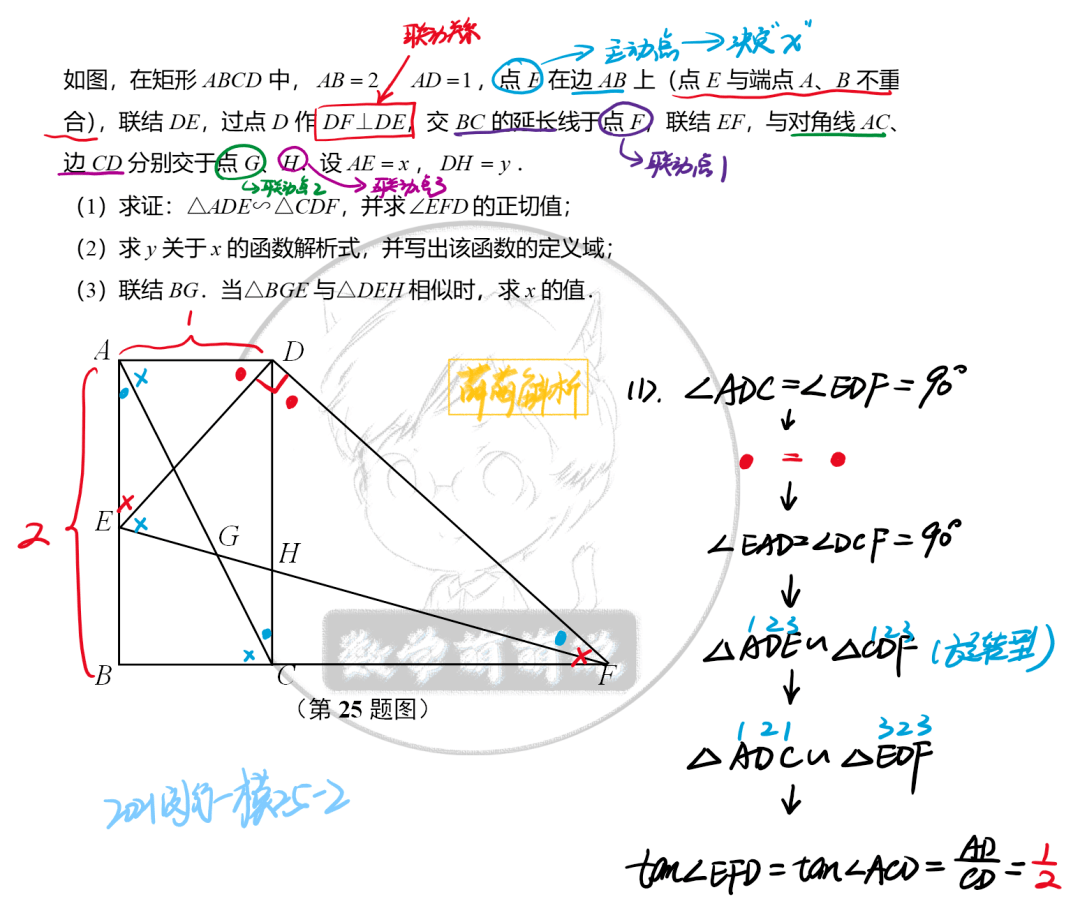 联动关系
主动点→决定"x"
如图，在矩形 ABCD 中， AB = 2 AD = 1 ，点 E 在边 AB 上（点 E 与端点 A、B 不重
合），联结 DE，过点 D 作 DF⊥DE，交 BC 的延长线于点 F，联结 EF，与对角线 AC、
边 CD 分别交于点 G、H. 设 AE = x ， DH = y .
联动点1
联动点2
联动点3
（1）求证：△ADE∽△CDF，并求∠EFD 的正切值；
（2）求 y 关于 x 的函数解析式，并写出该函数的定义域；
（3）联结 BG. 当△BGE 与△DEH 相似时，求 x 的值.
1
A
D
2
E
G
H
B
C
F
（第 25 题图）
萌萌解析
数学萌萌
2021闵行一模25-2
(1). ∠ADC=∠EDF=90°
↓
● = ●
↓
∠EAD=∠DCF=90°
↓
1 2 3 1 2 3
△ADE∽△CDF（旋转型）
↓
1 2 1 3 2 3
△ADC∽△EDF
↓
tan∠EFD=tan∠ACD=AD/CD=1/2